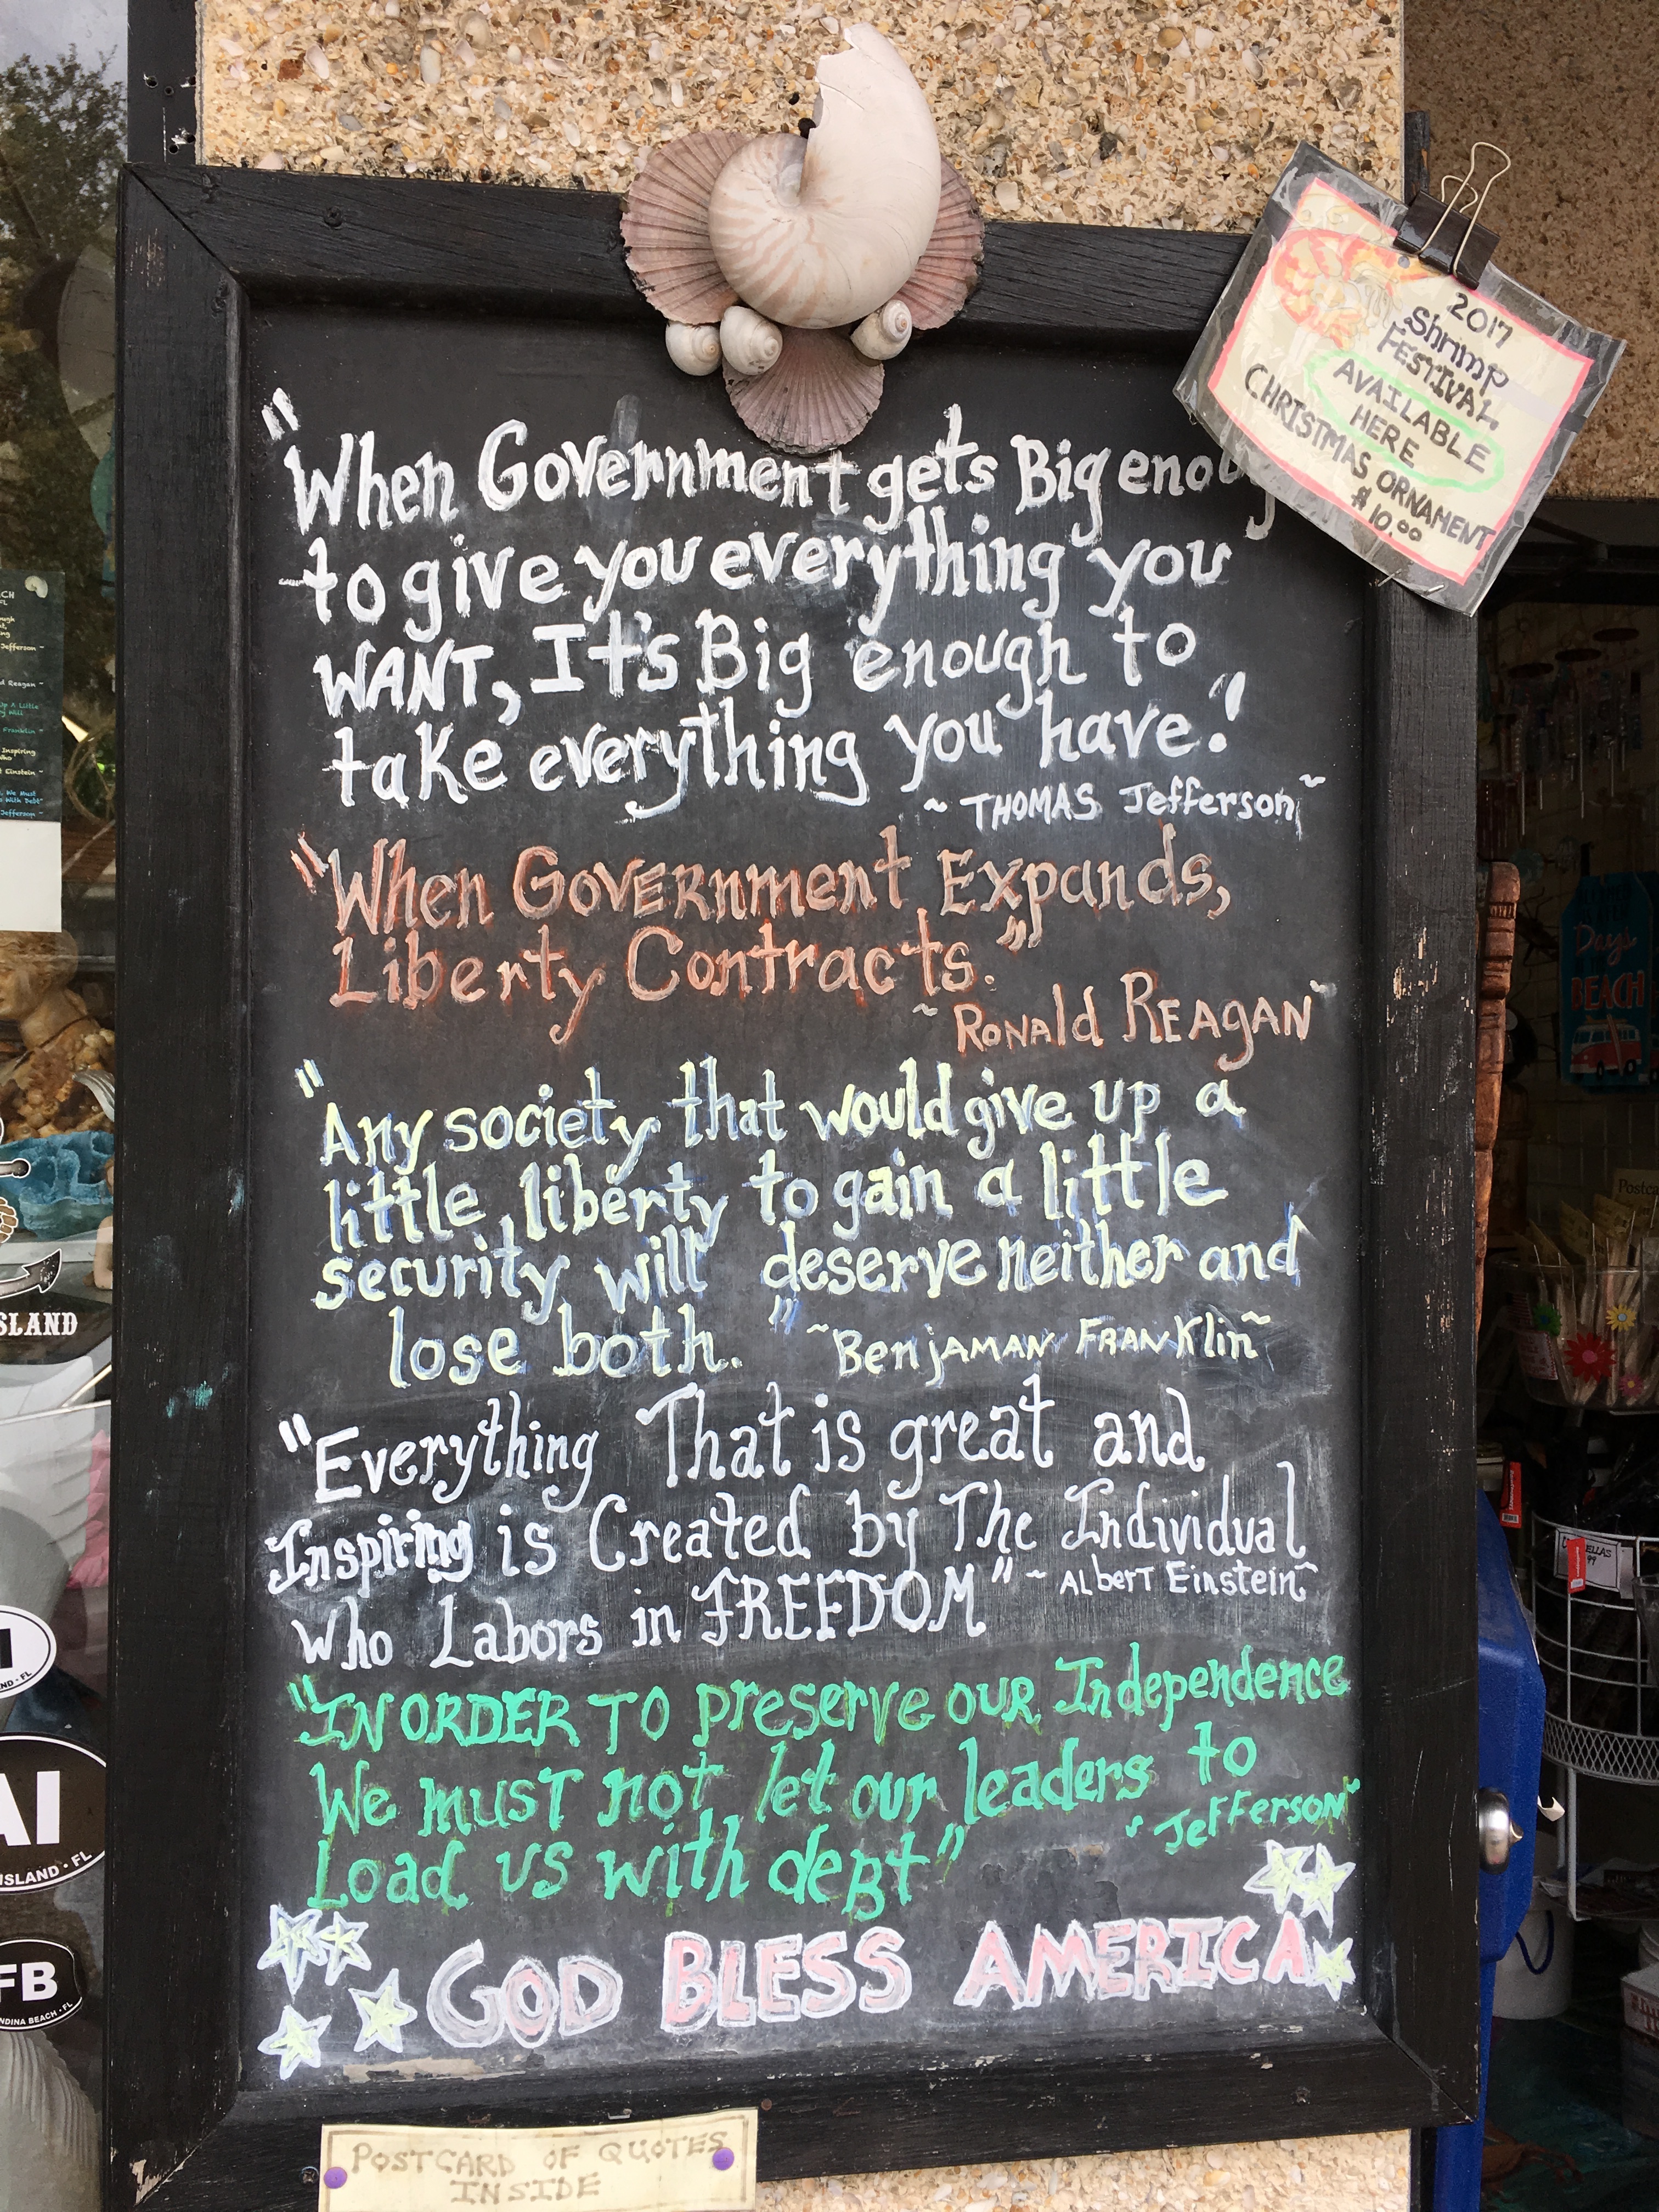 "When Government gets Big enoug
to give you everything you
WANT, It's Big enough to
take everything you have!
~ THOMAS Jefferson ~
"When Government Expands,
Liberty Contracts."
~ Ronald Reagan ~
"Any society that would give up a
little liberty to gain a little
security will deserve neither and
lose both." ~ Benjaman Franklin ~
"Everything That is great and
Inspiring is Created by The Individual
Who Labors in FREEDOM" ~ Albert Einstein ~
"IN ORDER TO preserve our Independence
We must not let our leaders to
Load us with debt" ~ Jefferson ~
GOD BLESS AMERICA
POSTCARD OF QUOTES
INSIDE
2017
Shrimp
FESTIVAL
AVAILABLE
HERE
CHRISTMAS ORNAMENT
$10.00
Jefferson ~
d Reagan ~
Up A Little
y Will
Franklin ~
Inspiring
Who
t Einstein ~
, We Must
s With Debt"
Jefferson ~
SLAND
AI
ISLAND • FL
FB
NDINA BEACH • FL
Days
BEACH
Postca